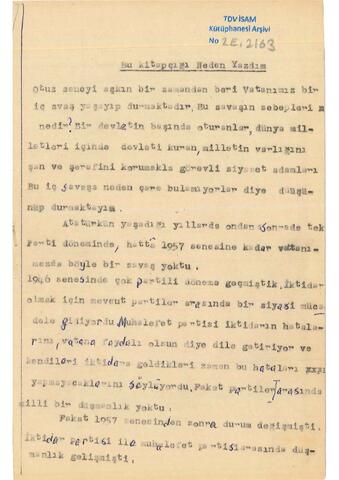 TDV İSAM
Kütüphanesi Arşivi
No 2E.2163
Bu kitapçığı Neden Yazdım
Otuz seneyi aşkın bir zamandan beri Vatanımız bir
iç savaş yaşayıp durmaktadır. Bu savaşın sebepleri
nedir? Bir devletin başında oturanlar, dünya mil-
letleri içinde devleti kuran, milletin varlığını
şan ve şerefini korumakla görevli siyaset adamları
Bu iç savaşa neden çare bulamıyorlar diye düşü-
nüp durmaktayım.
Atatürkün yaşadığı yıllarda ondan sonrada tek
Parti döneminde, hatta 1957 senesine kadar vatanı-
mızda böyle bir savaş yoktu.
1946 senesinde çok partili döneme geçmiştik. İktidar
olmak için mevcut partiler arasında bir siyasi müca
dele gidiyordu. Muhalefet partisi iktidarın hatala-
rını, vatana faydalı olsun diye dile getiriyor ve
kendileri iktidara geldikleri zaman bu hataları
yapmayacaklarını söylüyordu. Fakat partiler arasında
milli bir düşmanlık yoktu.
Fakat 1957 senesinden sonra durum değişmişti.
İktidar partisi ile muhalefet partisi arasında düş-
manlık gelişmişti.